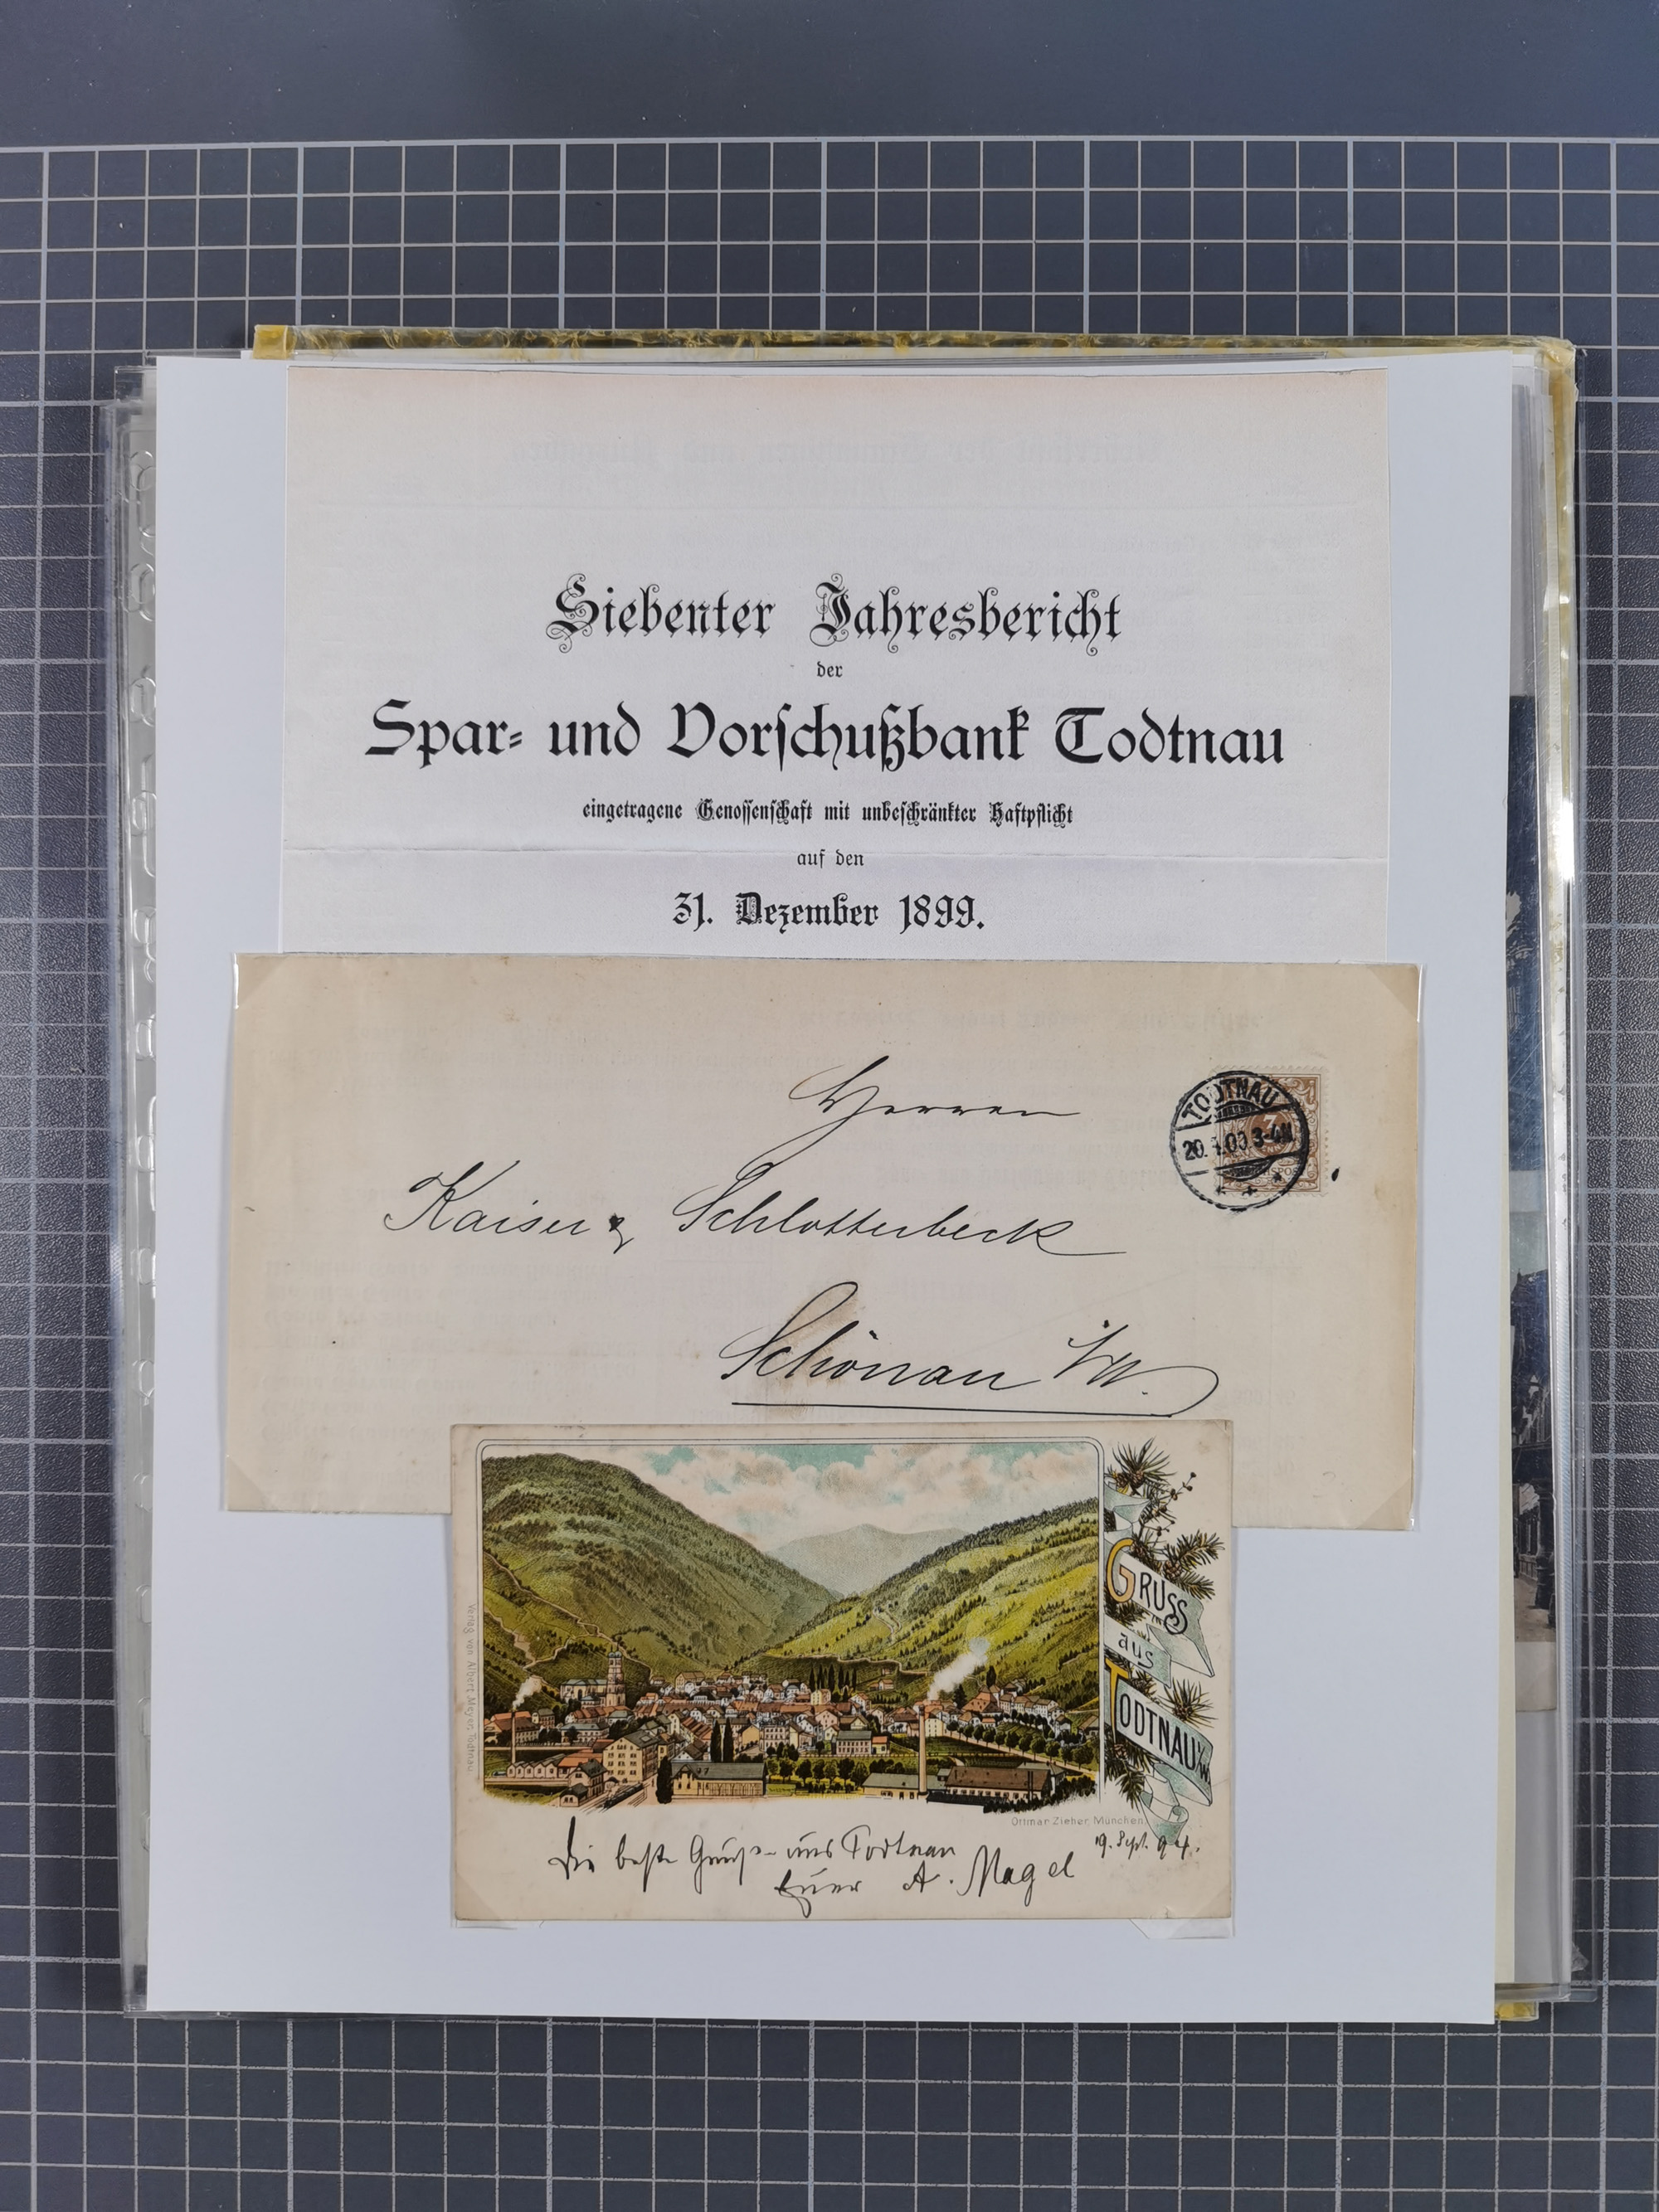 Siebenter Jahresbericht
der
Spar- und Vorschußbank Todtnau
eingetragene Genossenschaft mit unbeschränkter Haftpflicht
auf den
31. Dezember 1899.
Herren
TODTNAU
3
20. 4.00.3-4N
Kaiser & Schlotterbeck
Schönau i/W.
GRUSS
aus
TODTNAU i/W.
Verlag von Albert Meyer, Todtnau
Ottmar Zieher, München
Die beste Grüße aus Todtnau
19. Sept. 94.
Euer A. Magel